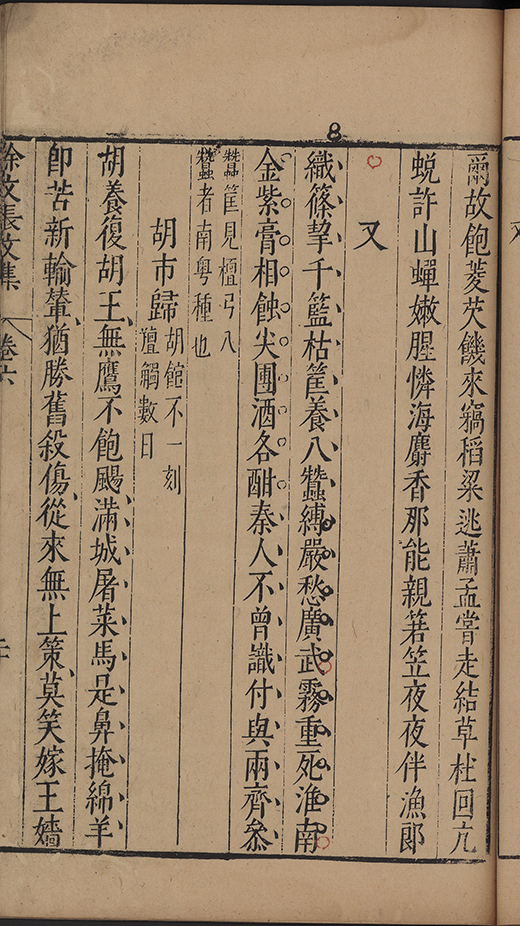 8
爾故飽菱芡饑來竊稻粱逃蕭孟嘗走結草杜回亢
蛻許山蟬嫩腥憐海麝香那能親箬笠夜夜伴漁郎
又
織篠挈千籃枯筐養八蠶縛嚴愁廣武霧重死淮南
金紫膏相蝕尖團酒各酣秦人不曾識付與兩齊叅
蠶筐見檀弓八
蠶者南粤種也
胡市歸
胡館不一刻
羶觸數日
胡養復胡王無鷹不飽颺滿城屠菜馬是鼻掩綿羊
卽苦新輸輦猶勝舊殺傷從來無上策莫笑嫁王嬙
徐文長文集
卷六